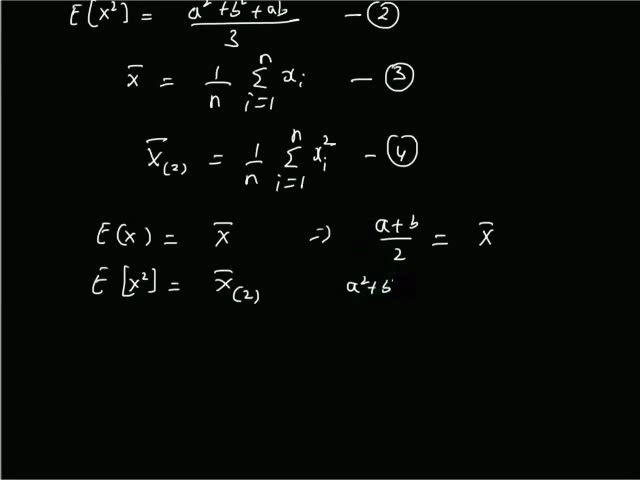 E[X²] = a² + b² + ab / 3 — ②
x̄ = 1/n Σ_{i=1}^{n} x_i — ③
X̄_(2) = 1/n Σ_{i=1}^{n} x_i² — ④
E(X) = X̄ ⇒ a+b / 2 = X̄
E[X²] = X̄_(2) a²+b